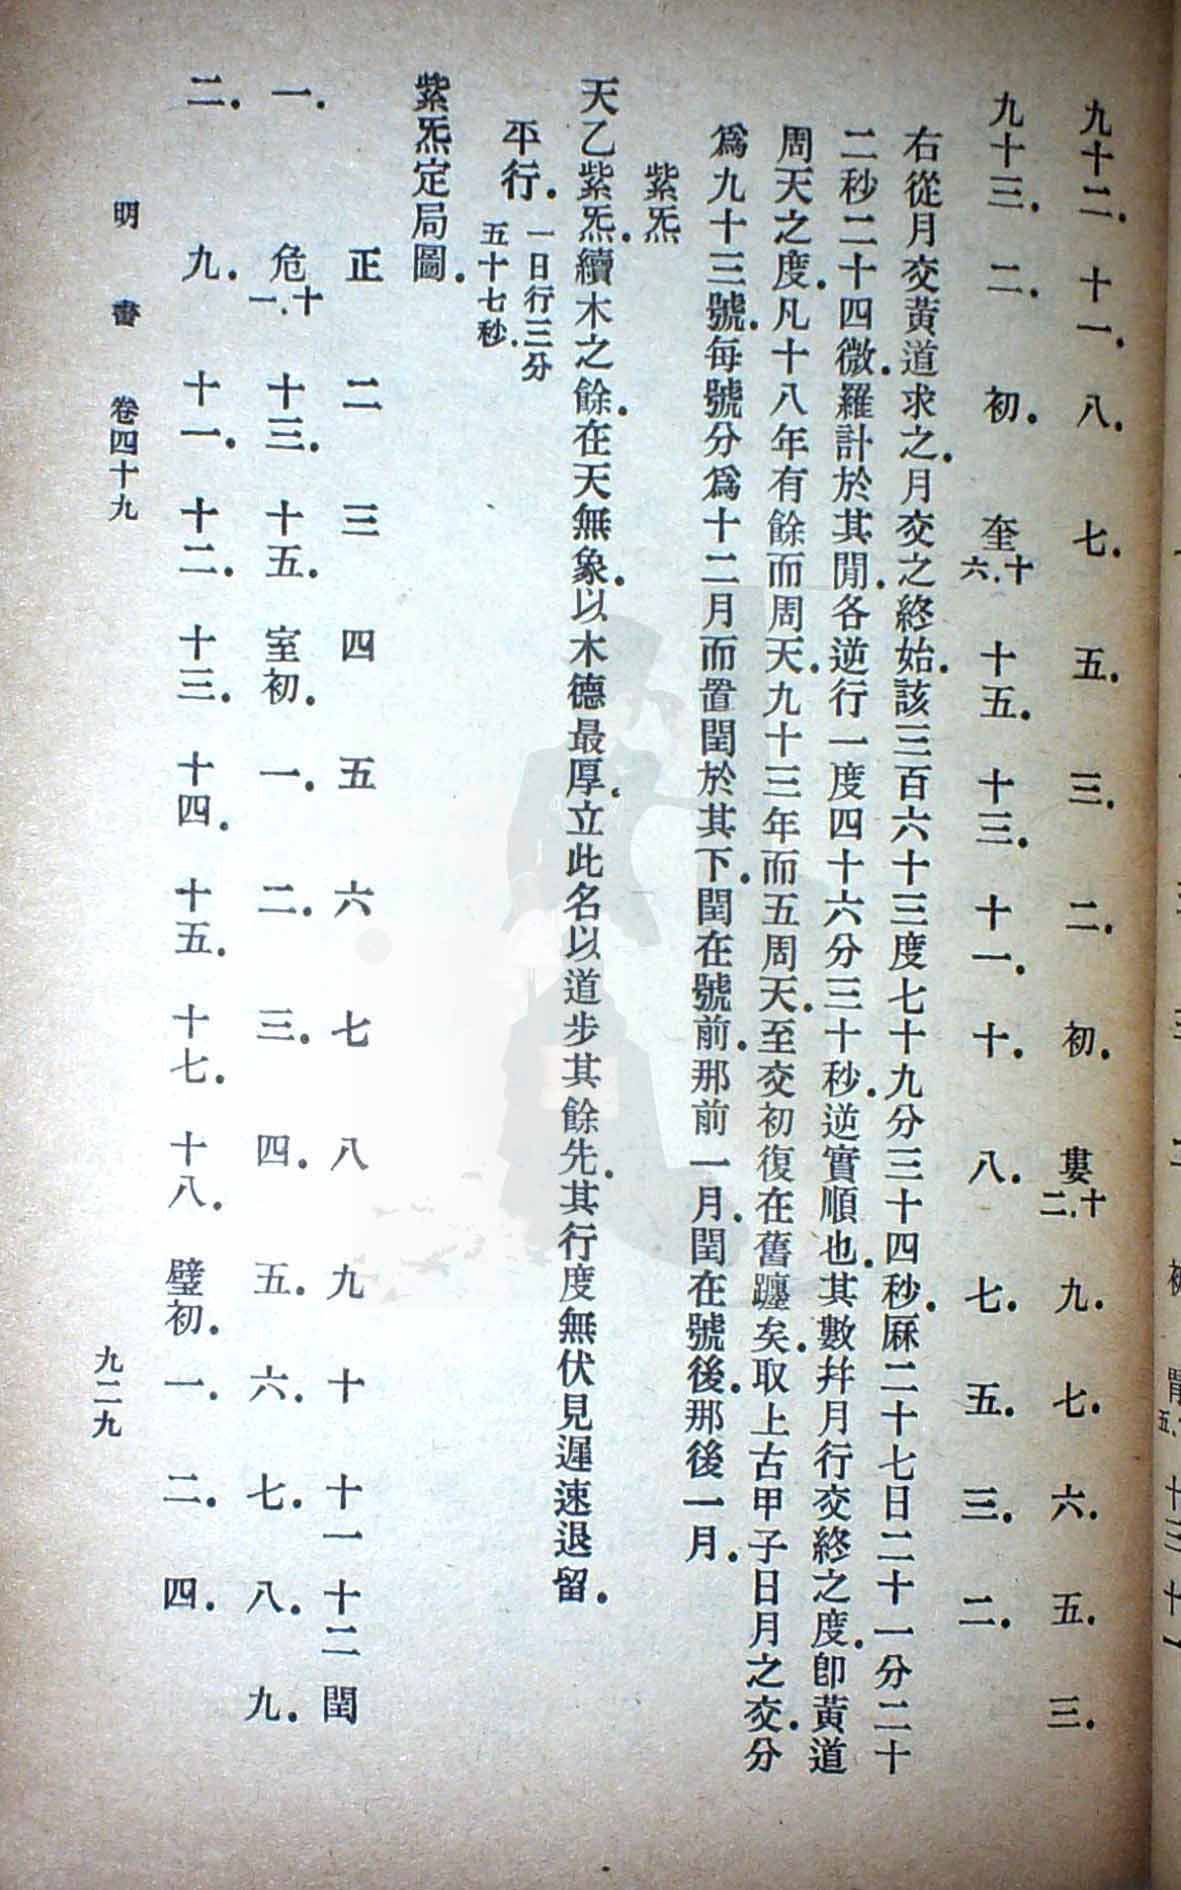 九十二．十一．八．七．五．三．二．初．婁十二．九．七．六．五．三．
九十三．二．初．奎十六．十五．十三．十一．十．八．七．五．三．二．
右從月交黃道求之．月交之終始．該三百六十三度七十九分三十四秒．厤二十七日二十一分二十
二秒二十四微．羅計於其閒．各逆行一度四十六分三十秒．逆實順也．其數幷月行交終之度．卽黃道
周天之度．凡十八年有餘而周天．九十三年而五周天．至交初復在舊躔矣．取上古甲子日月之交．分
爲九十三號．每號分爲十二月而置閏於其下．閏在號前．那前一月．閏在號後．那後一月．
紫炁
天乙紫炁．續木之餘．在天無象．以木德最厚．立此名以道步其餘先．其行度無伏見遲速退留．
平行．一日行三分五十七秒．
紫炁定局圖．
正 二 三 四 五 六 七 八 九 十 十一 十二 閏
一．危十一．十三．十五．室初．一．二．三．四．五．六．七．八．九．
二．九．十一．十二．十三．十四．十五．十七．十八．壁初．一．二．四．
明書 卷四十九 九二九